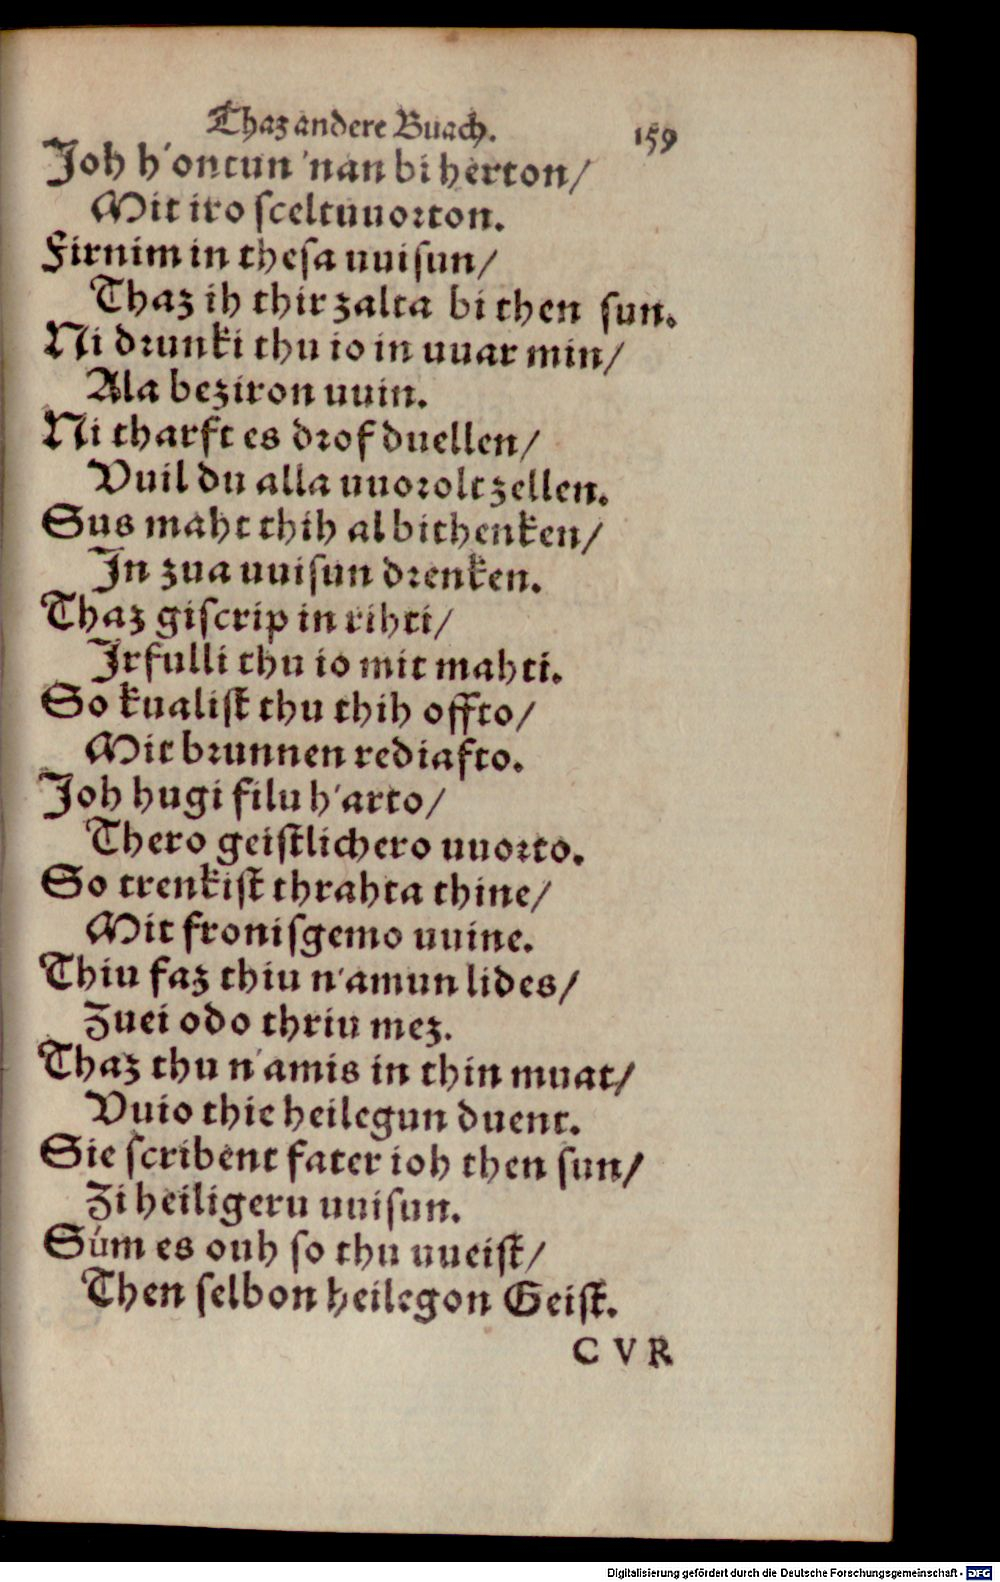 Thaz andere Buach. 159
Joh h'ontun 'nan bi herton/
Mit iro sceltuuorton.
Firnim in thesa uuisun/
Thaz ih thir zalta bi then sun.
Ni drunki thu io in uuar min/
Ala beziron uuin.
Ni tharft es drof duellen/
Vuil du alla uuorolt zellen.
Sus maht thih al bithenken/
In zua uuisun drenken.
Thaz giscrip in rihti/
Irfulli thu io mit mahti.
So kualist thu thih offto/
Mit brunnen rediafto.
Joh hugi filu h'arto/
Thero geistlichero uuorto.
So trenkist thrahta thine/
Mit fronisgemo uuine.
Thiu faz thiu n'amun lides/
Zuei odo thriu mez.
Thaz thu n'amis in thin muat/
Vuio thie heilegun duent.
Sie scribent fater ioh then sun/
Zi heiligeru uuisun.
Súm es ouh so thu uueist/
Then selbon heilegon Geist.
CVR
Digitalisierung gefördert durch die Deutsche Forschungsgemeinschaft - DFG